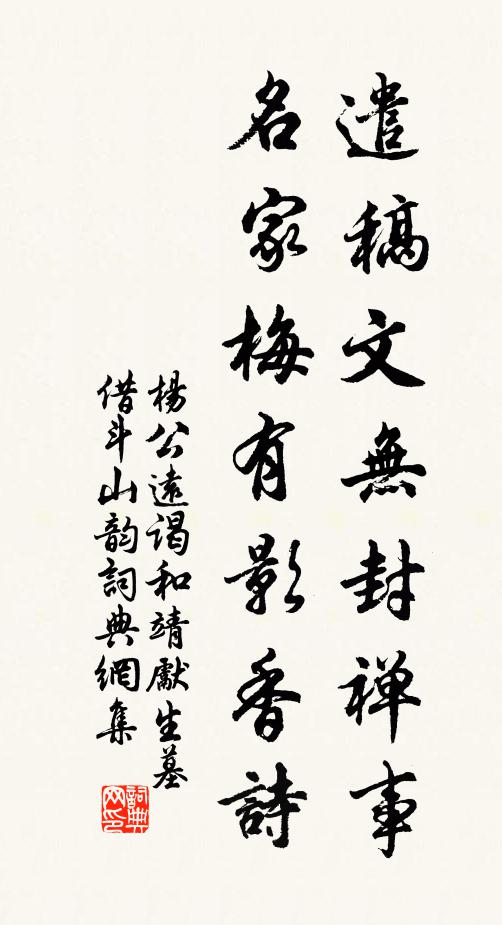 遣稿文無封禅事
名家梅有影香詩
楊公遠謁和靖處生墓
借斗山韵詞典網集
詞典网印